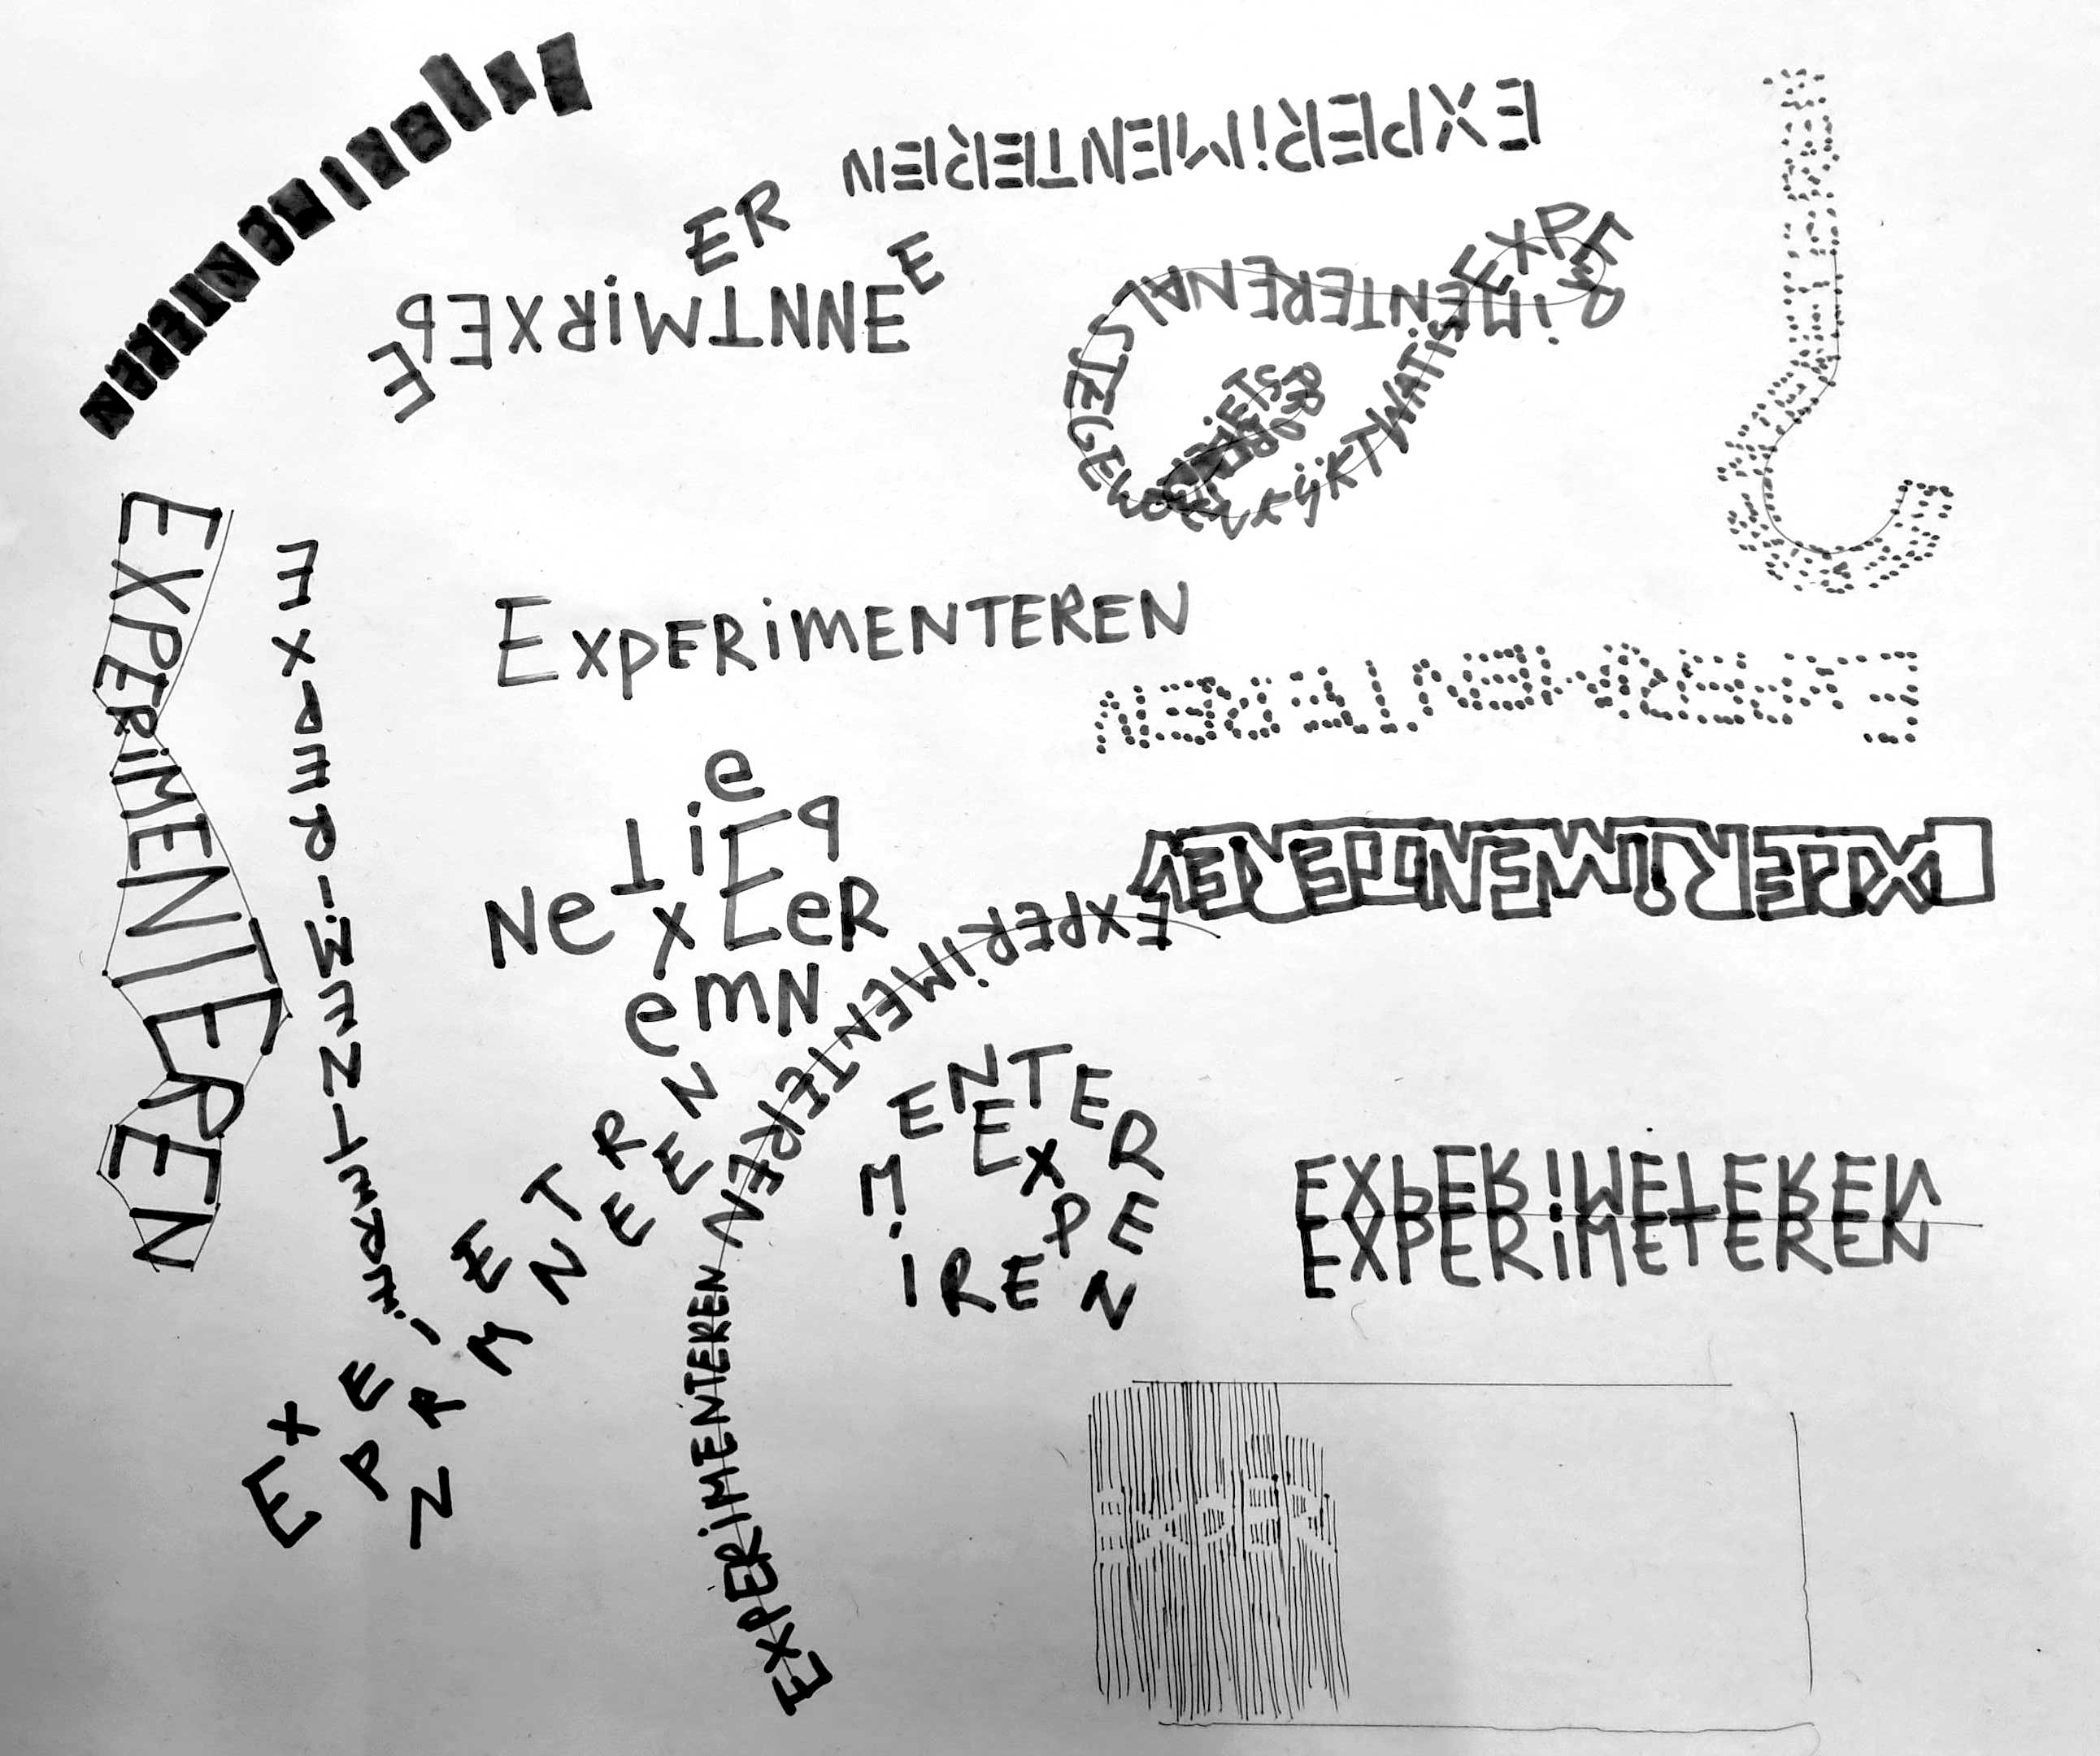 EXPERiMENTEREN
ER
E PEXRiMTNNE E
EXPERiMENTERENALSJEGEWOON
KijKTWATiS
EXPERiMENTEREN
EXPERiMENTEREN
EXPERiMENTEREN
EXPERiMENTEREN
EXPERIMENTEREN
e
T i E P
Ne x eR
emN
EXPERIMENTEREN
EXPERiMENTEREN
EXPERiMENTEREN
EXPERiMENTEREN
EXPERiMENTEREN
EXPERiMETEREN
EXPERiMETEREN
EXPER